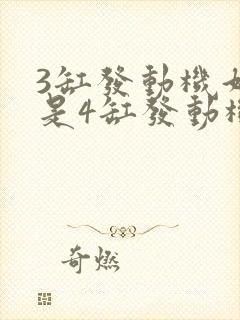 3缸發動機
是4缸發動機
奇燃